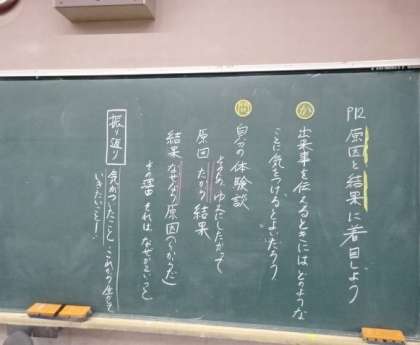 P12 原因と結果に着目しよう
か 出来事を伝えるときにはどのような
ことに気をつけるとよいだろう
自分の体験談
よって、ゆえに、したがって
原因 だから 結果
結果 なぜなら 原因(〜からだ)
その理由 それは なぜかというと
振り返り 気がついたこと、これから生かして
いきたいこと!